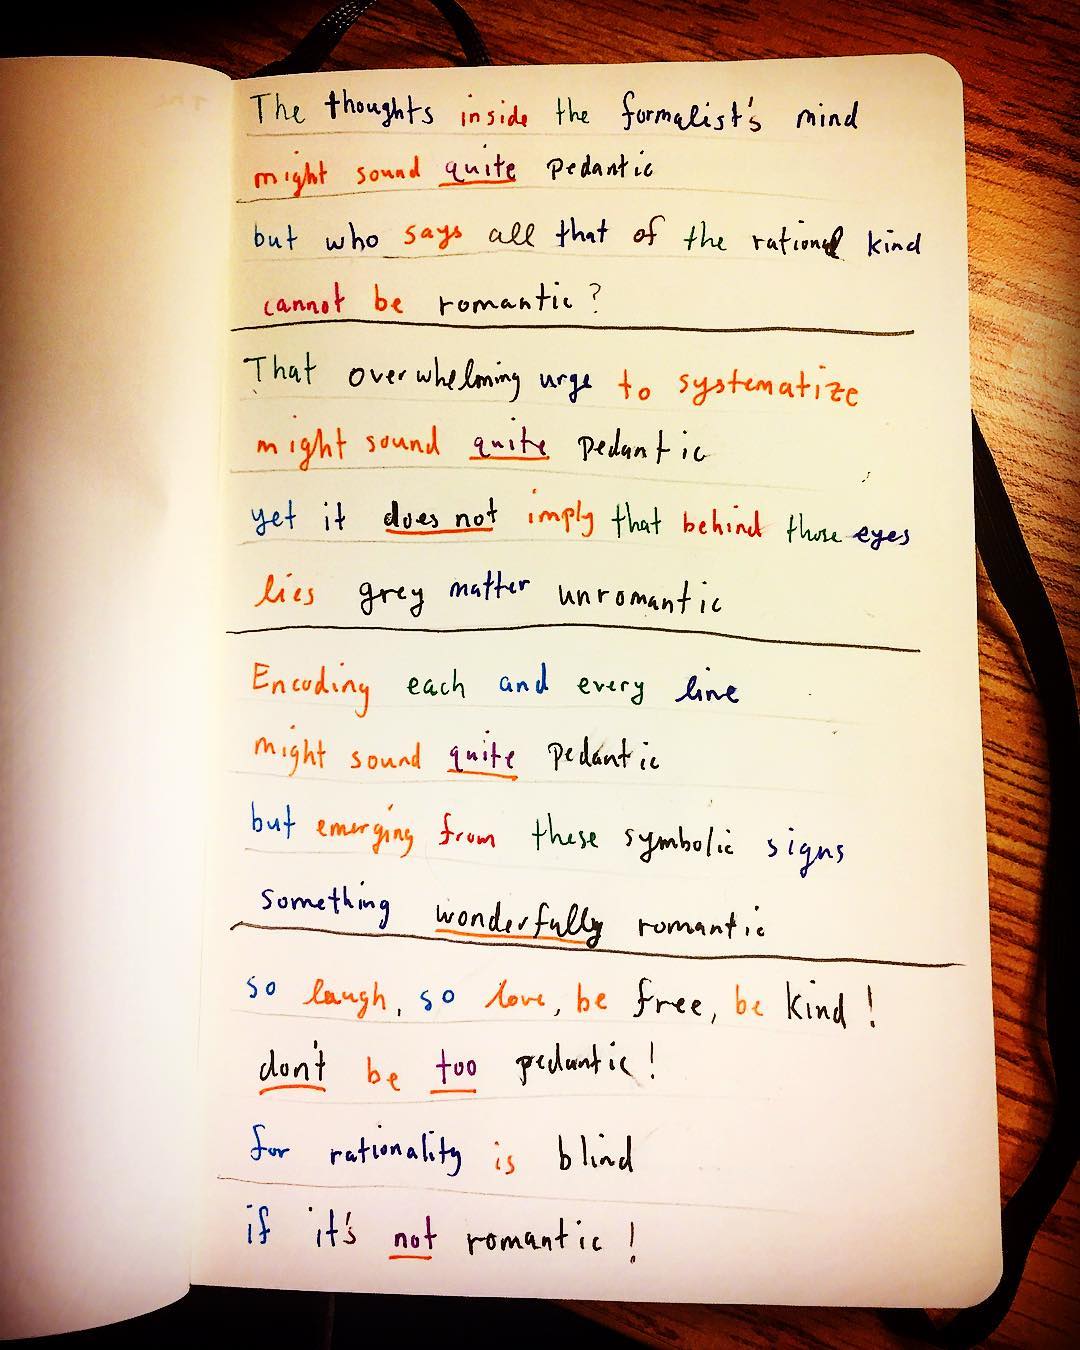 The thoughts inside the formalist's mind
might sound quite pedantic
but who says all that of the rational kind
cannot be romantic?
That overwhelming urge to systematize
might sound quite pedantic
yet it does not imply that behind those eyes
lies grey matter unromantic
Encoding each and every line
might sound quite pedantic
but emerging from these symbolic signs
something wonderfully romantic
so laugh, so love, be free, be kind!
don't be too pedantic!
for rationality is blind
if it's not romantic!